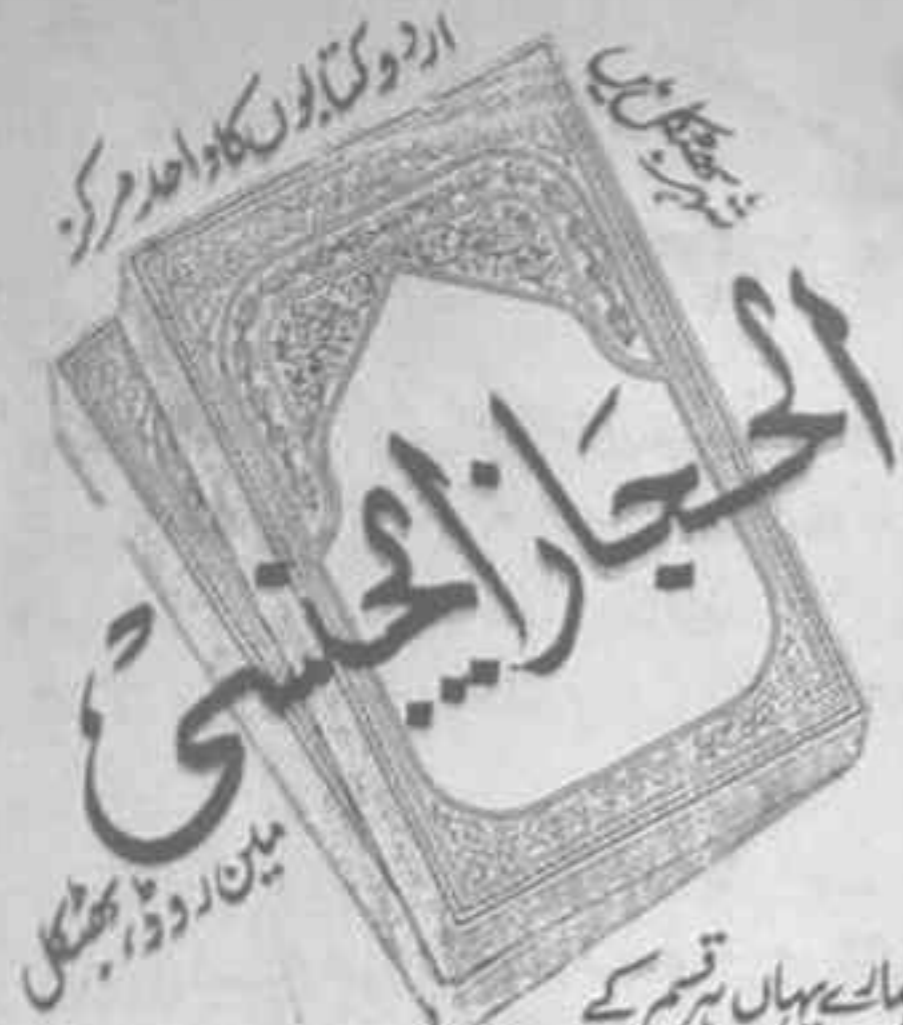 شہر بھٹکل میں
اردو کتابوں کا واحد مرکز
الحجاز ایجنسی
مین روڈ، بھٹکل
ہمارے یہاں ہر قسم کے